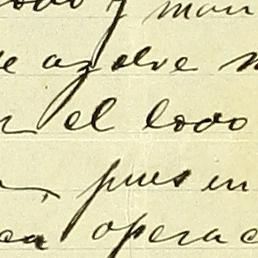 y man
azolve
el lodo
pues en
opera